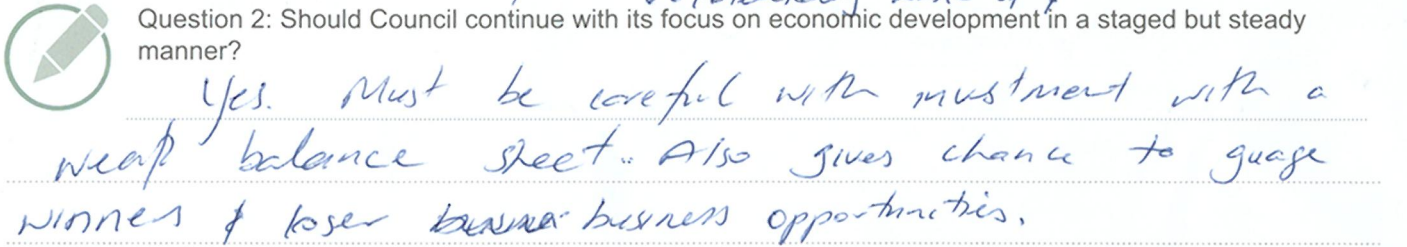 Question 2: Should Council continue with its focus on economic development in a staged but steady
manner?
Yes. Must be careful with investment with a
weak balance sheet.. Also gives chance to guage
winners & loser business opportunities.